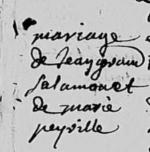 mariage
de Jeayraud
salamon et
de marie
peyrille